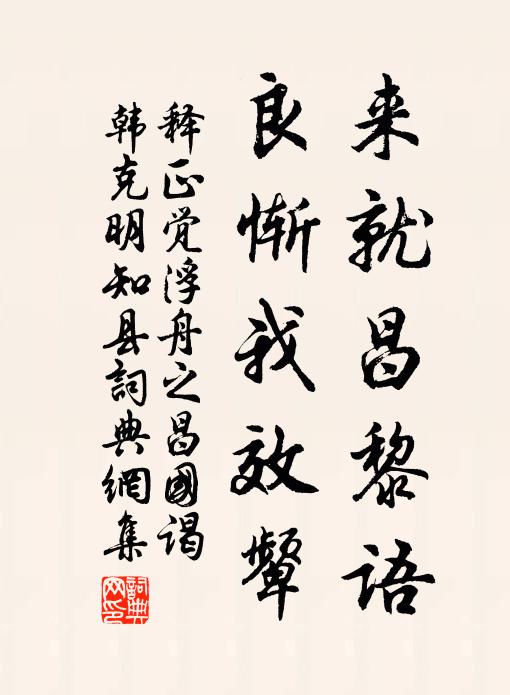 来就昌黎语
良惭我效颦
释正觉浮舟之昌國谒
韩克明知县詞典網集
詞典網印